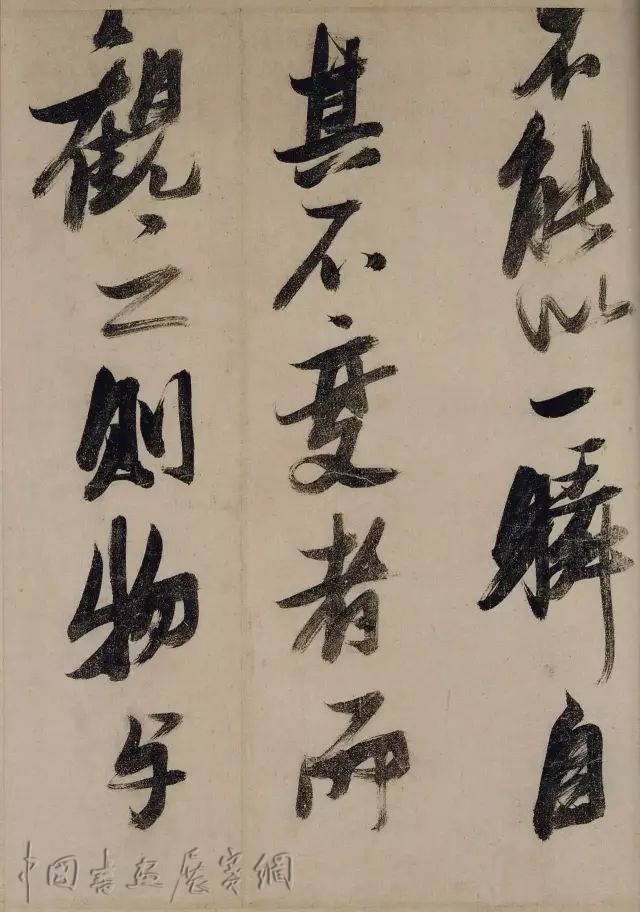 不能以一瞬自
其不變者而
觀之則物与
中國書畫展賽網